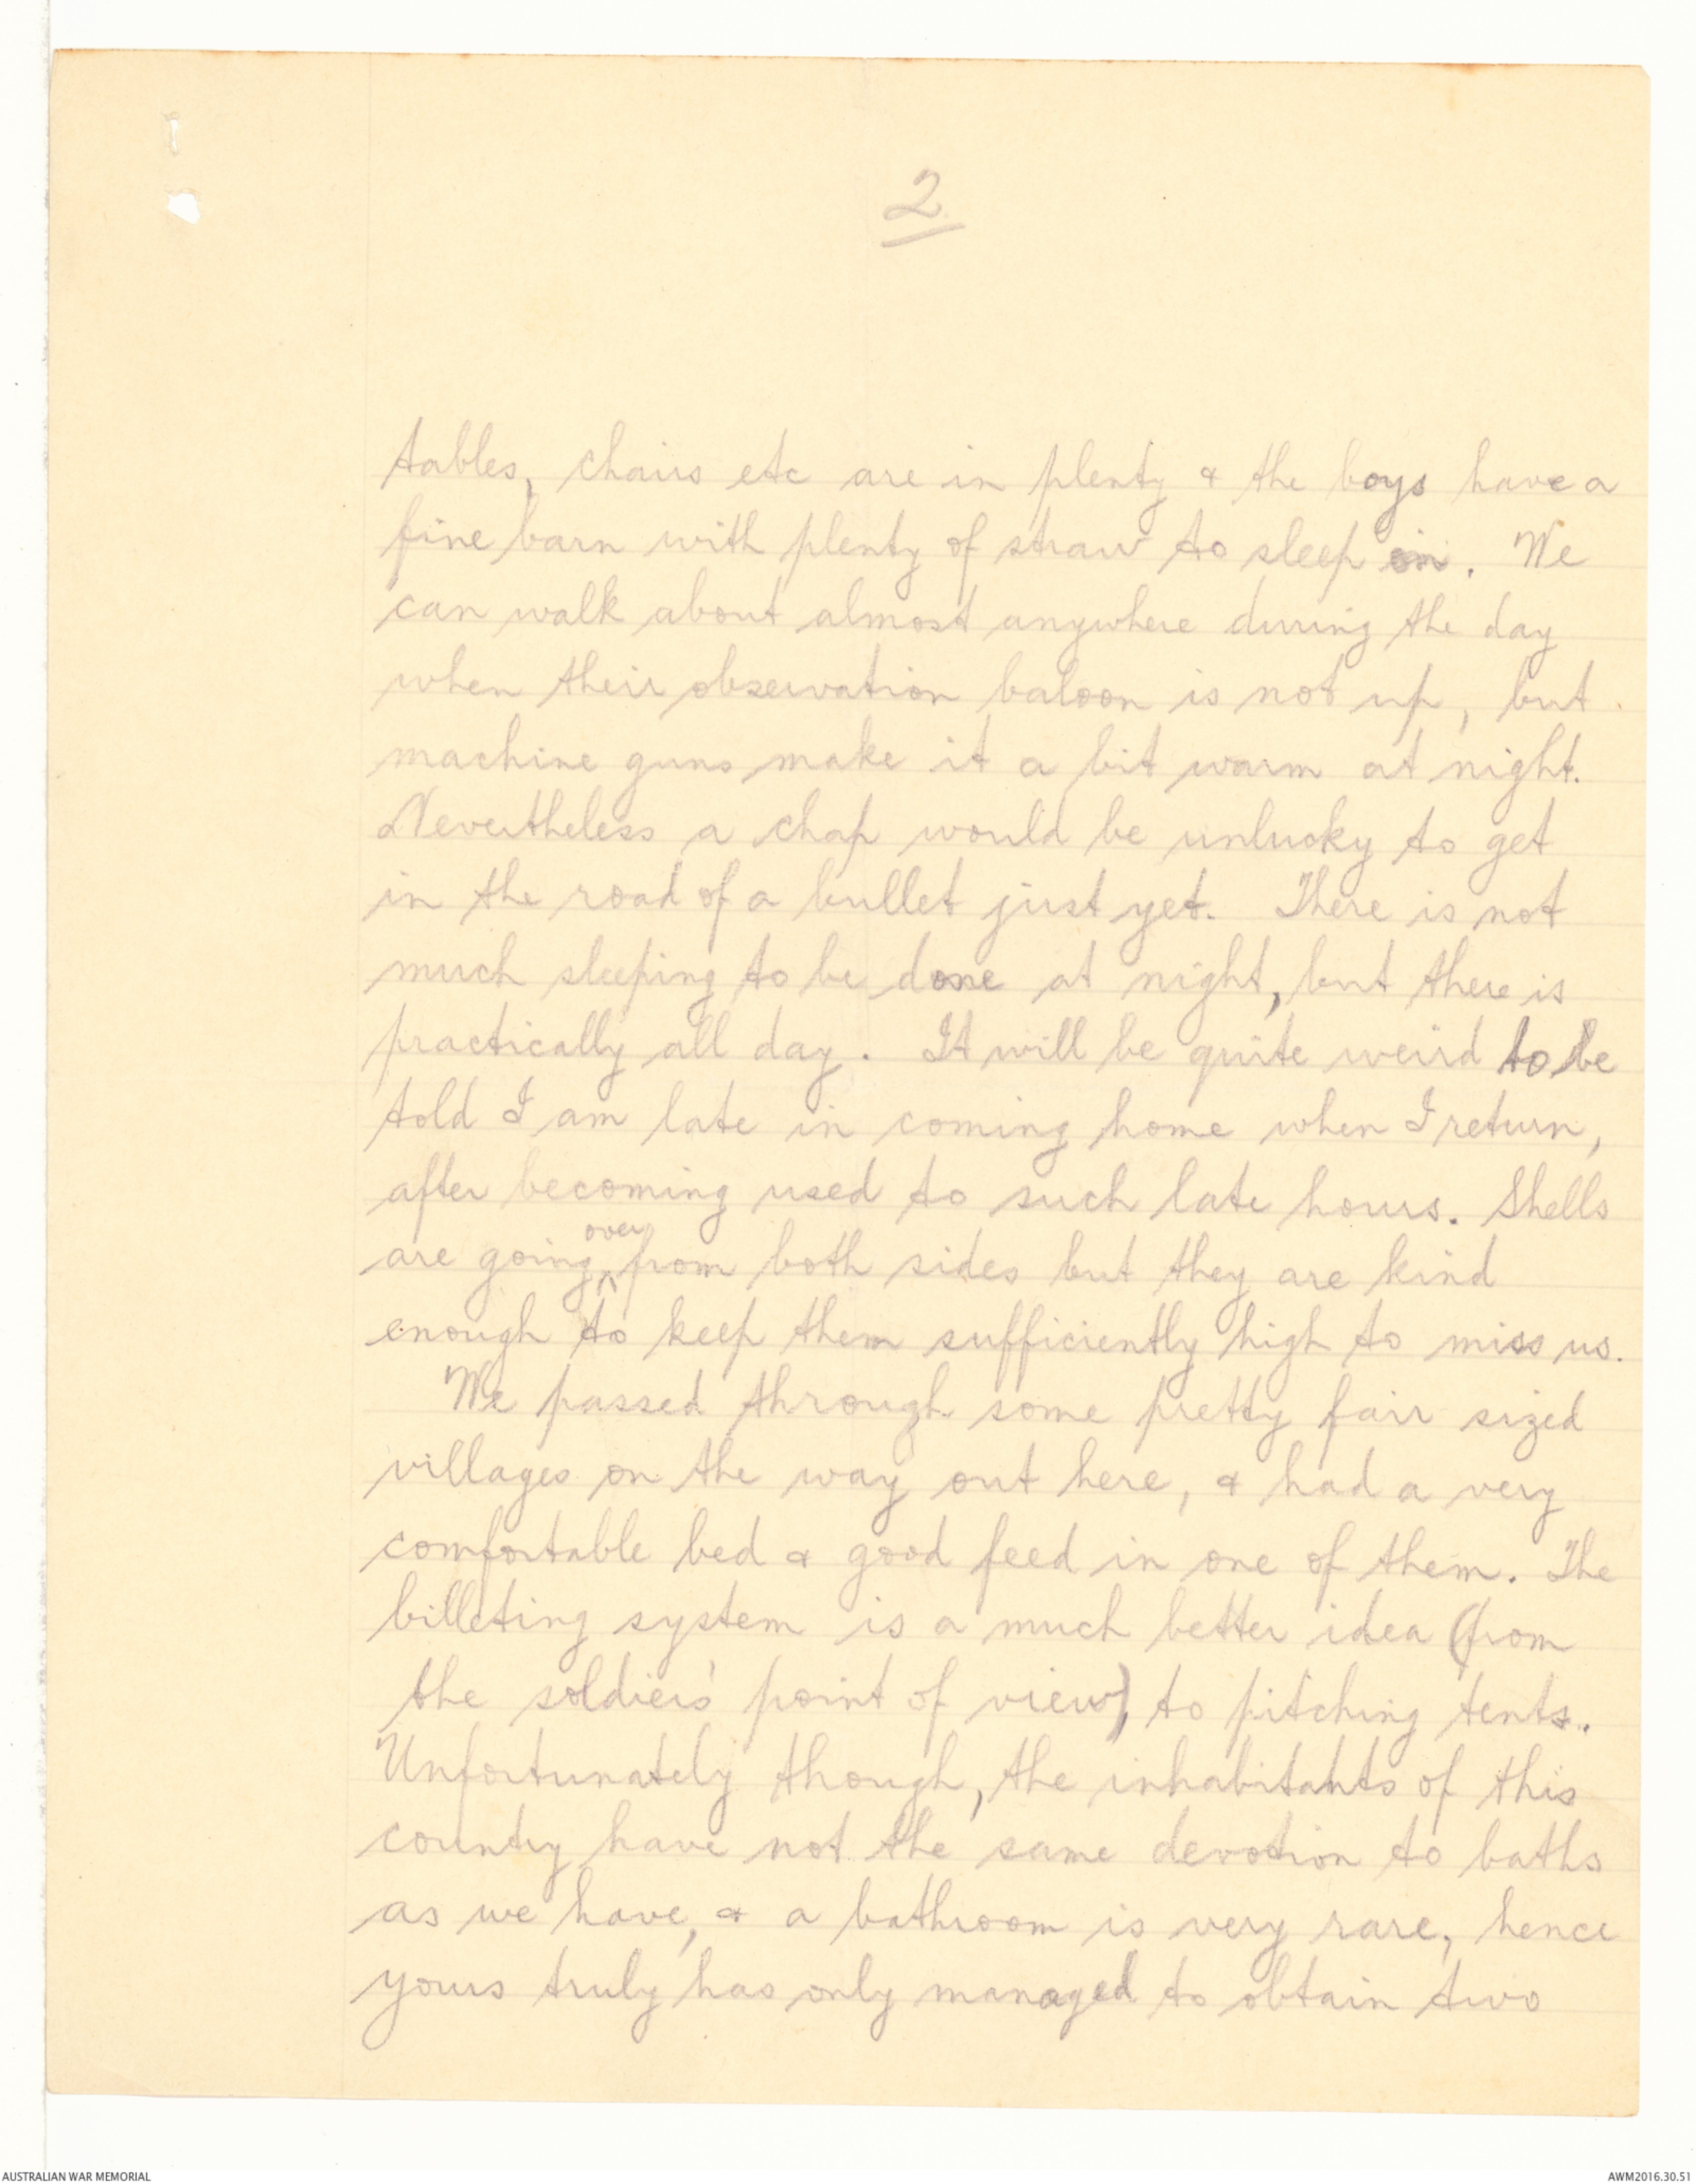 2.
tables, chairs etc are in plenty & the boys have a
fine barn with plenty of straw to sleep in. We
can walk about almost anywhere during the day
when their observation baloon is not up, but
machine guns make it a bit warm at night.
Nevertheless a chap would be unlucky to get
in the road of a bullet just yet. There is not
much sleeping to be done at night, but there is
practically all day. It will be quite weird to be
told I am late in coming home when I return,
after becoming used to such late hours. Shells
are going over from both sides but they are kind
enough to keep them sufficiently high to miss us.
We passed through some pretty fair sized
villages on the way out here, & had a very
comfortable bed & good feed in one of them. The
billeting system is a much better idea (from
the soldiers' point of view), to pitching tents.
Unfortunately though, the inhabitants of this
country have not the same devotion to baths
as we have, & a bathroom is very rare, hence
yours truly has only managed to obtain two
AUSTRALIAN WAR MEMORIAL
AWM2016.30.51